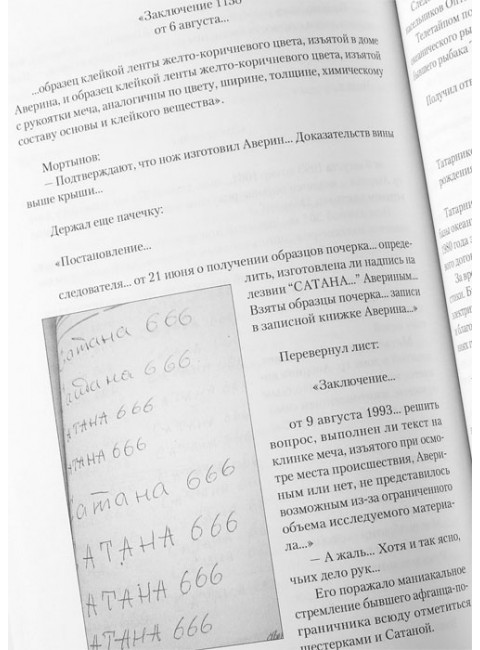 «Заключение 1138
от 6 августа...
...образец клейкой ленты желто-коричневого цвета, изъятой в доме
Аверина, и образец клейкой ленты желто-коричневого цвета, изъятой
с рукоятки меча, аналогичны по цвету, ширине, толщине, химическому
составу основы и клейкого вещества».
Мортынов:
— Подтверждают, что нож изготовил Аверин... Доказательств вины
выше крыши...
Держал еще пачечку:
«Постановление...
следователя... от 21 июня о получении образцов почерка... опреде-
лить, изготовлена ли надпись на
лезвии “САТАНА...” Авериным...
Взяты образцы почерка... записи
в записной книжке Аверина...»
Перевернул лист:
«Заключение...
от 9 августа 1993... решить
вопрос, выполнен ли текст на
клинке меча, изъятого при осмо-
тре места происшествия, Авери-
ным или нет, не представилось
возможным из-за ограниченного
объема исследуемого материа-
ла...»
— А жаль... Хотя и так ясно,
чьих дело рук...
Его поражало маниакальное
стремление бывшего афганца-по-
граничника всюду отметиться
шестерками и Сатаной.
Сатана 666
Сатана 666
АТАНА 666
АТАНА 666
Сатана 666
АТАНА 666
АТАНА 666
АТАНА 666
Телетайпом по
Получил отв
Татаринко
рождения
Татарин
базы океан
980 года
ного догов
За вре